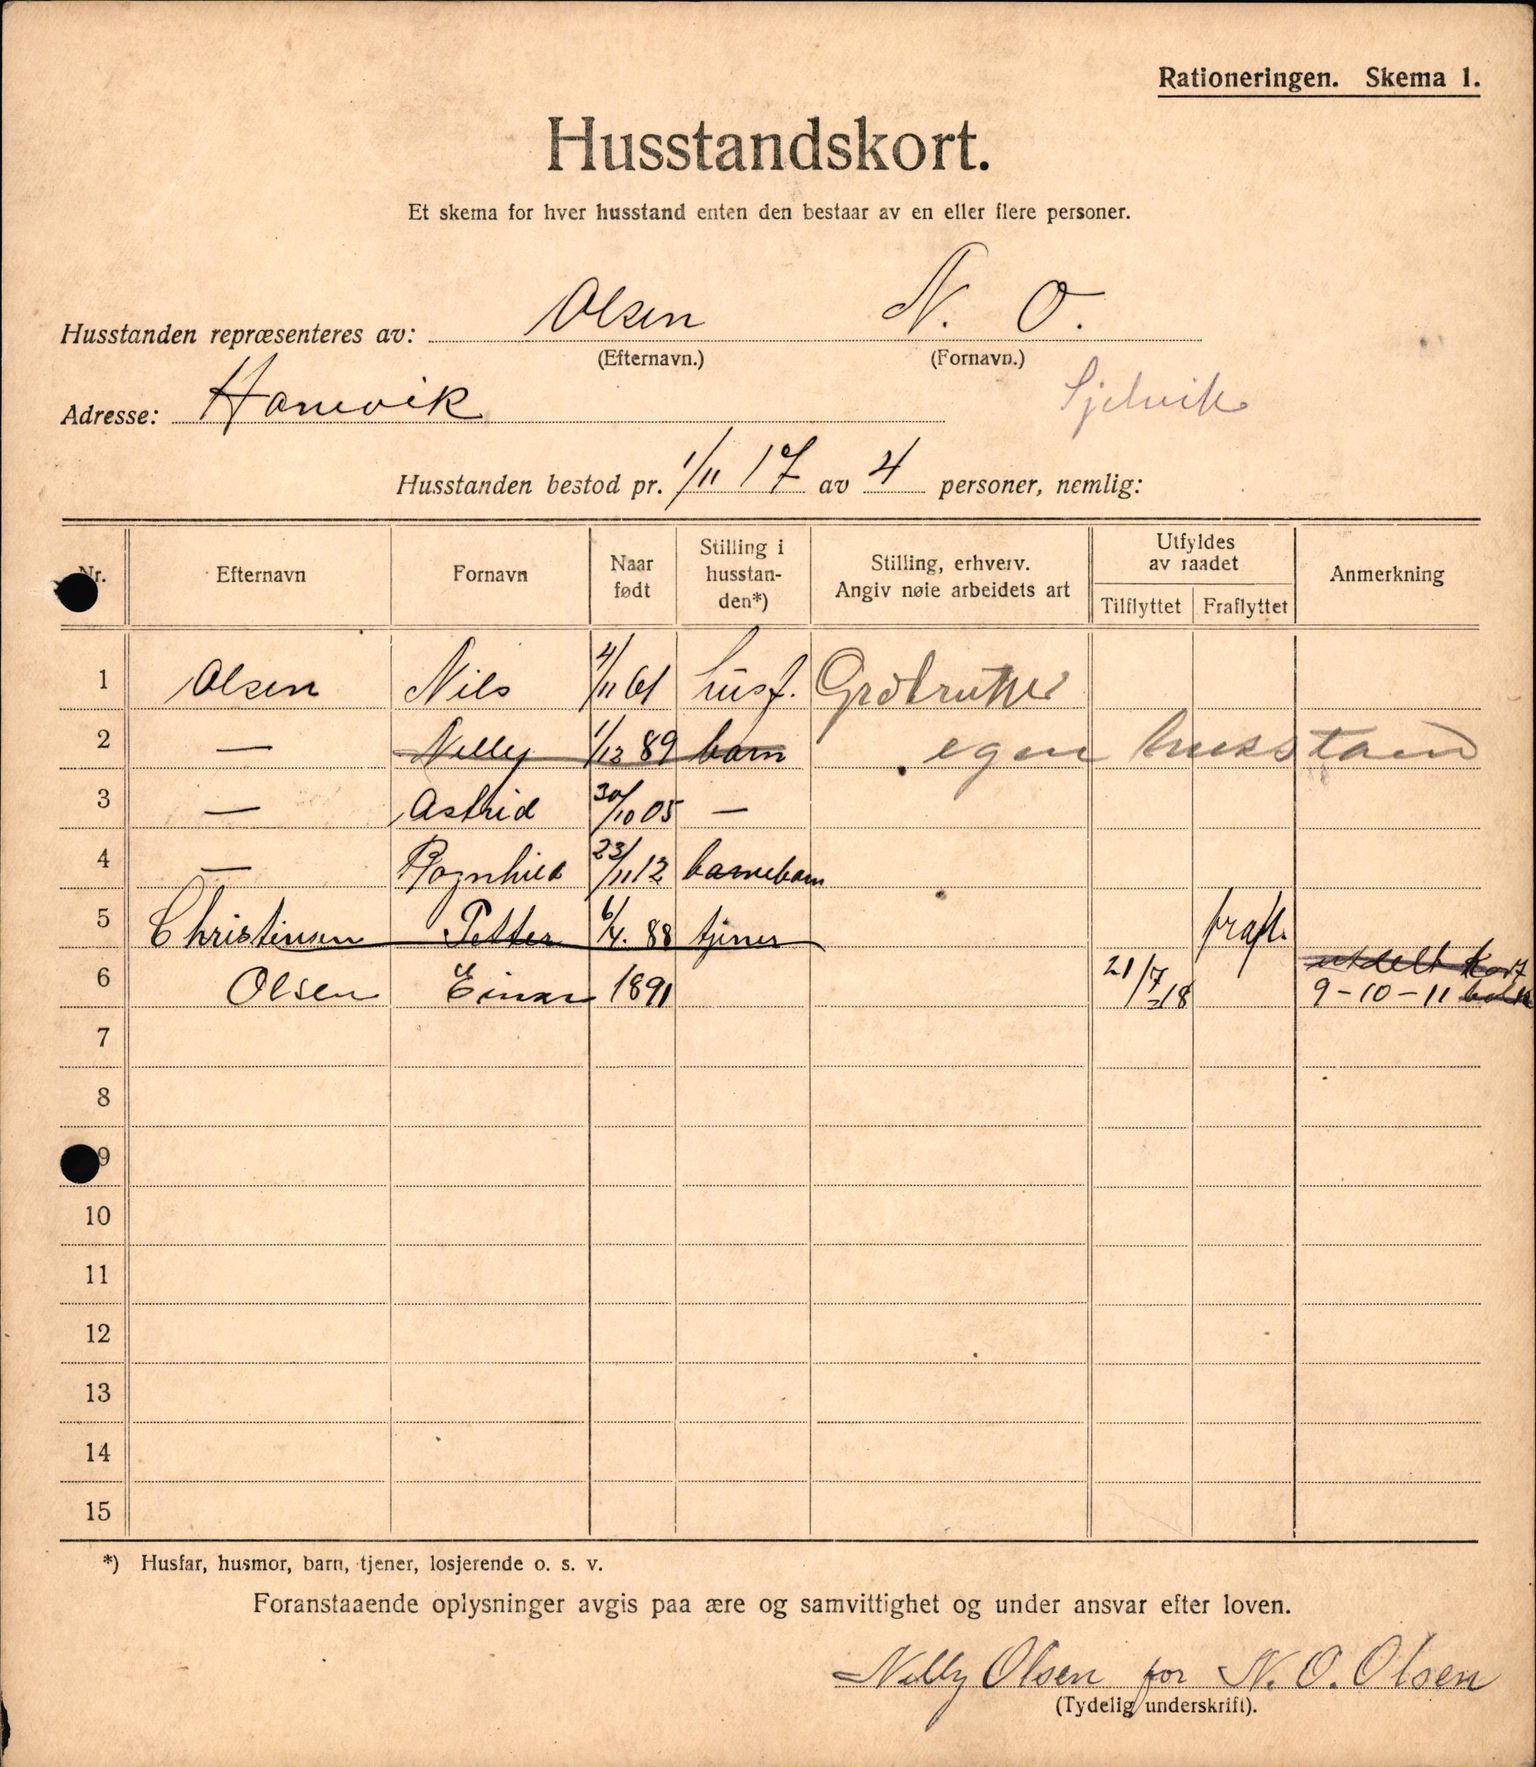 Rationeringen. Skema 1.
Husstandskort.
Et skema for hver husstand enten den bestaar av en eller flere personer.
Husstanden repræsenteres av: Olsen N. O.
(Efternavn.) (Fornavn.)
Adresse: Hamvik
Husstanden bestod pr. 1/11 17 av 4 personer, nemlig:
Nr. Efternavn Fornavn Naar født Stilling i husstanden*) Stilling, erhverv. Angiv nøie arbeidets art Utfyldes av raadet Tilflyttet Fraflyttet Anmerkning
1 Olsen Nils 4/11 61 husf.
2 — Nelly 1/12 89 barn egen husstand
3 — Astrid 30/10 05 —
4 — Ragnhild 23/11 12 barnebarn
5 Christensen Petter 6/4. 88 tjener frafl.
6 Olsen Einar 1891 21/7 18 utdelt kort
9-10-11
7
8
9
10
11
12
13
14
15
*) Husfar, husmor, barn, tjener, losjerende o. s. v.
Foranstaaende oplysninger avgis paa ære og samvittighet og under ansvar efter loven.
Nelly Olsen for N. O. Olsen
(Tydelig underskrift).